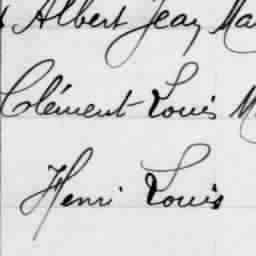 Albert Jean
Clément-Louis
Henri Louis